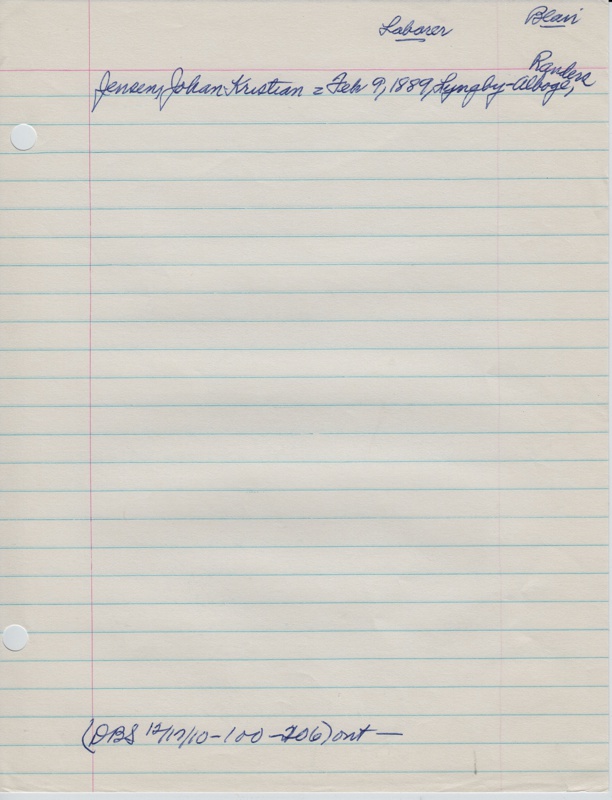 Laborer Blair
Randers
Jensen, Johan Kristian = Feb 9, 1889, Lyngby-Alboge,
(DBS 12/17/10-100-706) ont —